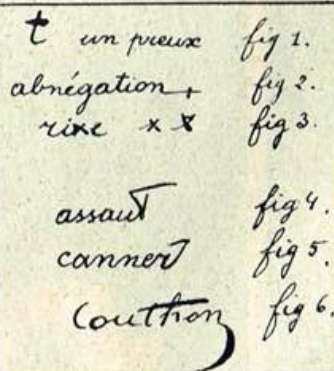 t un preux fig 1.
abnégation + fig 2.
rixe x x fig 3.
assaut fig 4.
canner fig 5.
Couthon fig 6.